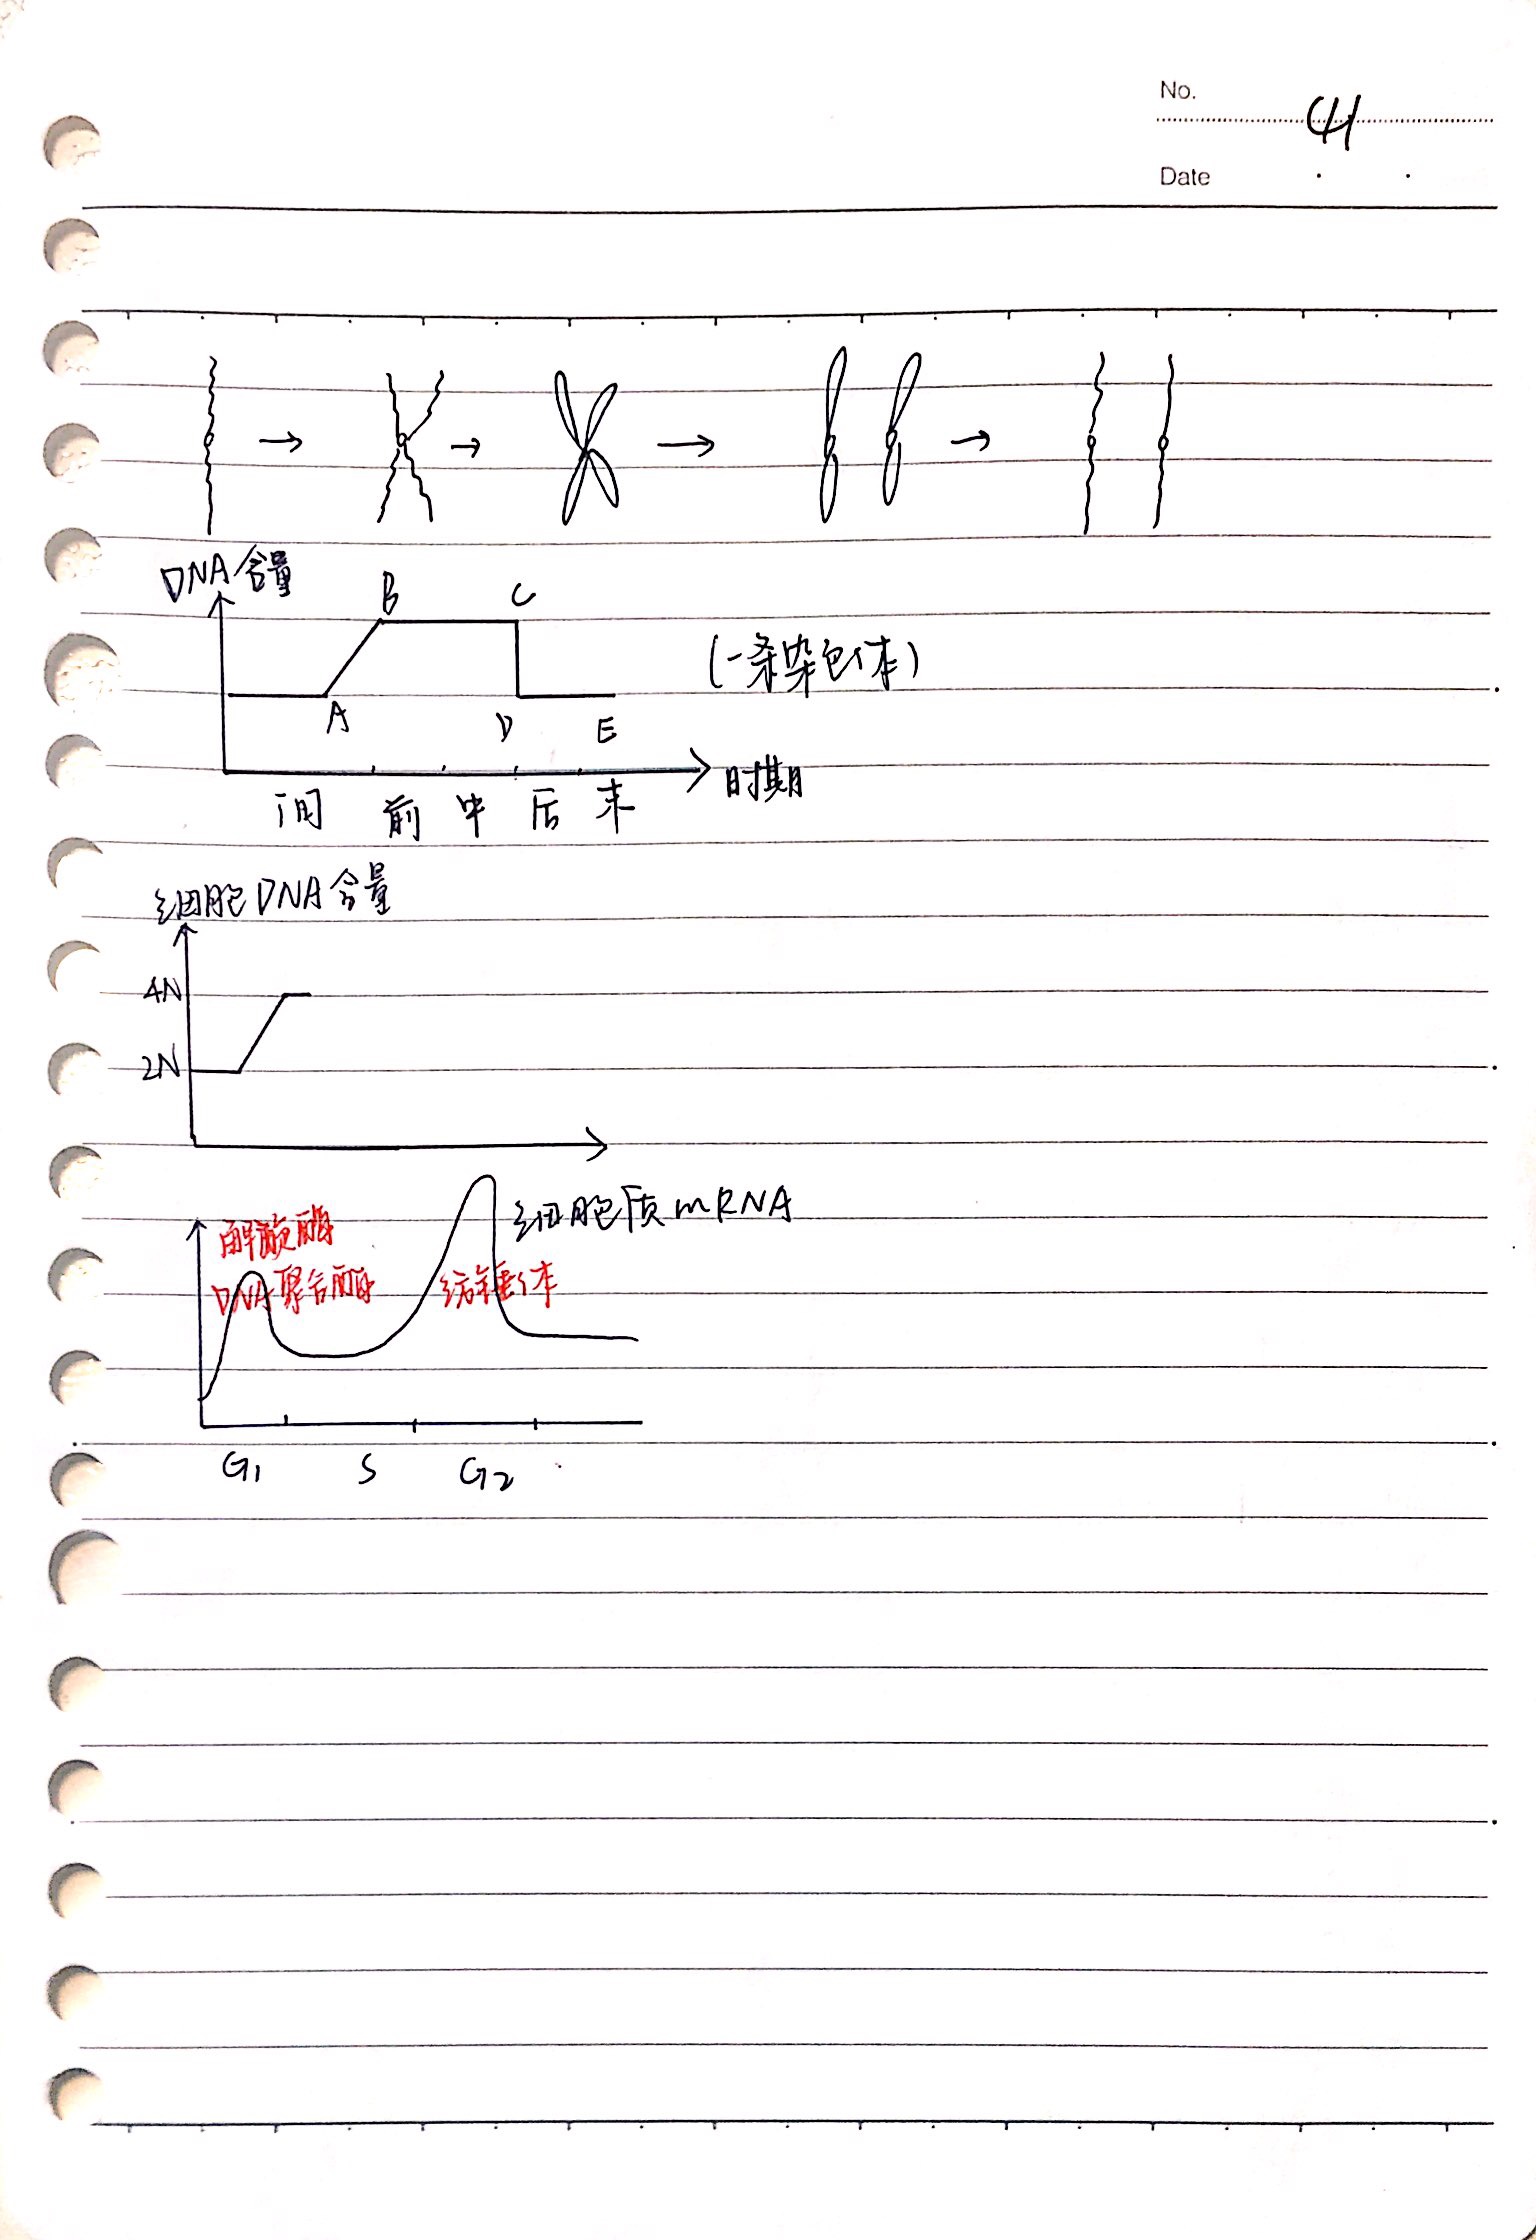 No. 41
Date
DNA含量
B C
(一条染色体)
A D E
时期
间 前 中 后 末
细胞DNA含量
4N
2N
细胞质mRNA
解旋酶
DNA聚合酶
纺锤体
G1 S G2